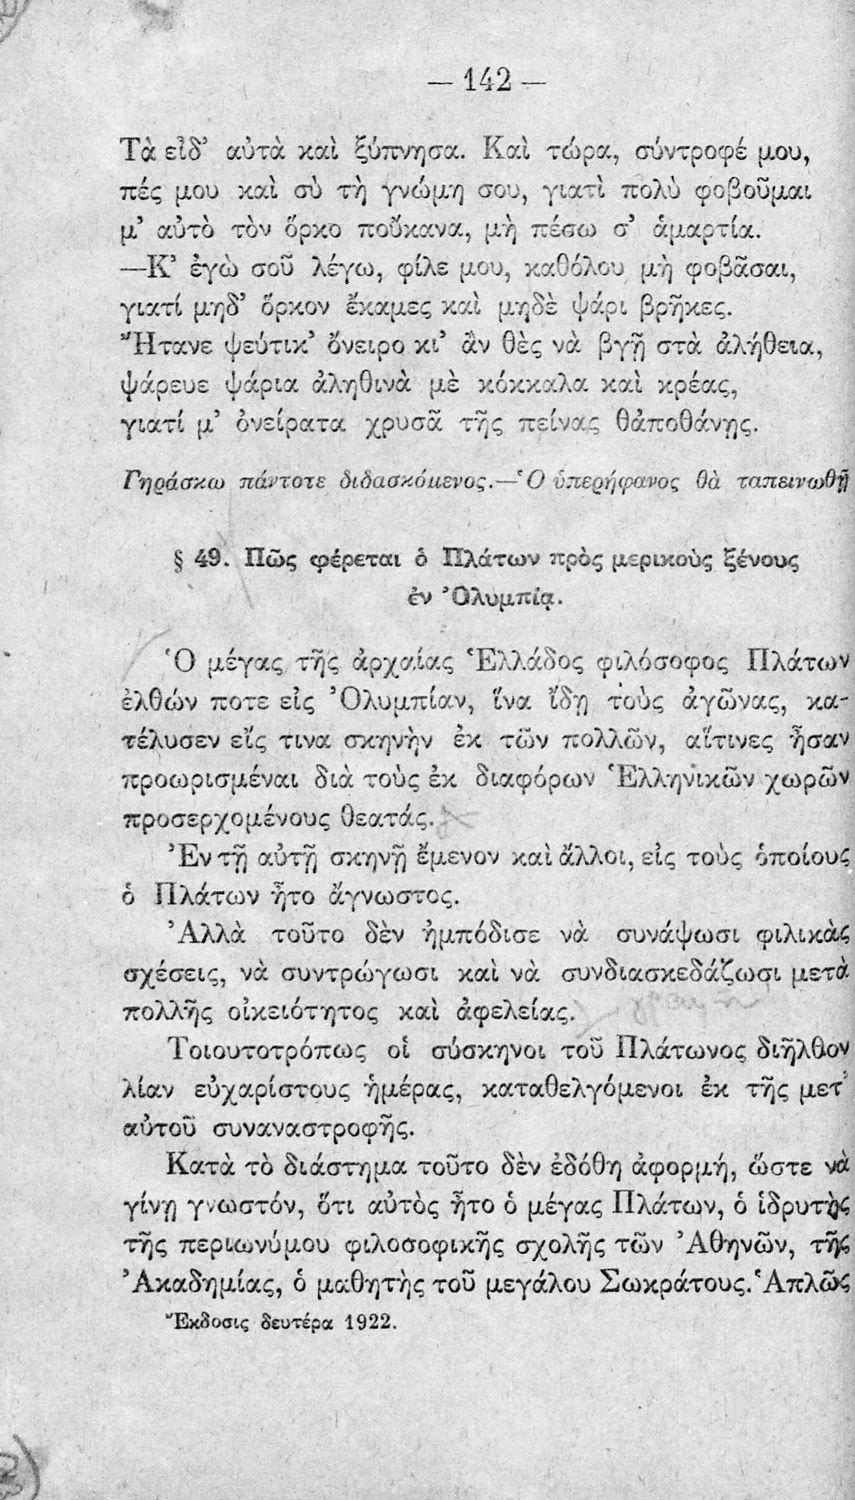 — 142 —
Τὰ εἶδ’ αὐτὰ καὶ ξύπνησα. Καὶ τώρα, σύντροφέ μου,
πές μου καὶ σὺ τὴ γνώμη σου, γιατὶ πολὺ φοβοῦμαι
μ’ αὐτὸ τὸν ὅρκο ποὔκανα, μὴ πέσω σ’ ἁμαρτία.
—Κ’ ἐγὼ σοῦ λέγω, φίλε μου, καθόλου μὴ φοβᾶσαι,
γιατί μηδ’ ὅρκον ἔκαμες καὶ μηδὲ ψάρι βρῆκες.
Ἤτανε ψεύτικ’ ὄνειρο κι’ ἂν θὲς νὰ βγῇ στὰ ἀλήθεια,
ψάρευε ψάρια ἀληθινὰ μὲ κόκκαλα καὶ κρέας,
γιατί μ’ ὀνείρατα χρυσᾶ τῆς πείνας θἀποθάνῃς.
Γηράσκω πάντοτε διδασκόμενος.—Ὁ ὑπερήφανος θὰ ταπεινωθῇ
§ 49. Πῶς φέρεται ὁ Πλάτων πρὸς μερικοὺς ξένους
ἐν Ὀλυμπίᾳ.
Ὁ μέγας τῆς ἀρχαίας Ἑλλάδος φιλόσοφος Πλάτων
ἐλθών ποτε εἰς Ὀλυμπίαν, ἵνα ἴδῃ τοὺς ἀγῶνας, κα-
τέλυσεν εἴς τινα σκηνὴν ἐκ τῶν πολλῶν, αἵτινες ἦσαν
προωρισμέναι διὰ τοὺς ἐκ διαφόρων Ἑλληνικῶν χωρῶν
προσερχομένους θεατάς.
Ἐν τῇ αὐτῇ σκηνῇ ἔμενον καὶ ἄλλοι, εἰς τοὺς ὁποίους
ὁ Πλάτων ἦτο ἄγνωστος.
Ἀλλὰ τοῦτο δὲν ἠμπόδισε νὰ συνάψωσι φιλικὰς
σχέσεις, νὰ συντρώγωσι καὶ νὰ συνδιασκεδάζωσι μετὰ
πολλῆς οἰκειότητος καὶ ἀφελείας.
Τοιουτοτρόπως οἱ σύσκηνοι τοῦ Πλάτωνος διῆλθον
λίαν εὐχαρίστους ἡμέρας, καταθελγόμενοι ἐκ τῆς μετ’
αὐτοῦ συναναστροφῆς.
Κατὰ τὸ διάστημα τοῦτο δὲν ἐδόθη ἀφορμή, ὥστε νὰ
γίνῃ γνωστόν, ὅτι αὐτὸς ἦτο ὁ μέγας Πλάτων, ὁ ἱδρυτὴς
τῆς περιωνύμου φιλοσοφικῆς σχολῆς τῶν Ἀθηνῶν, τῆς
Ἀκαδημίας, ὁ μαθητὴς τοῦ μεγάλου Σωκράτους. Ἁπλῶς
Ἔκδοσις δευτέρα 1922.